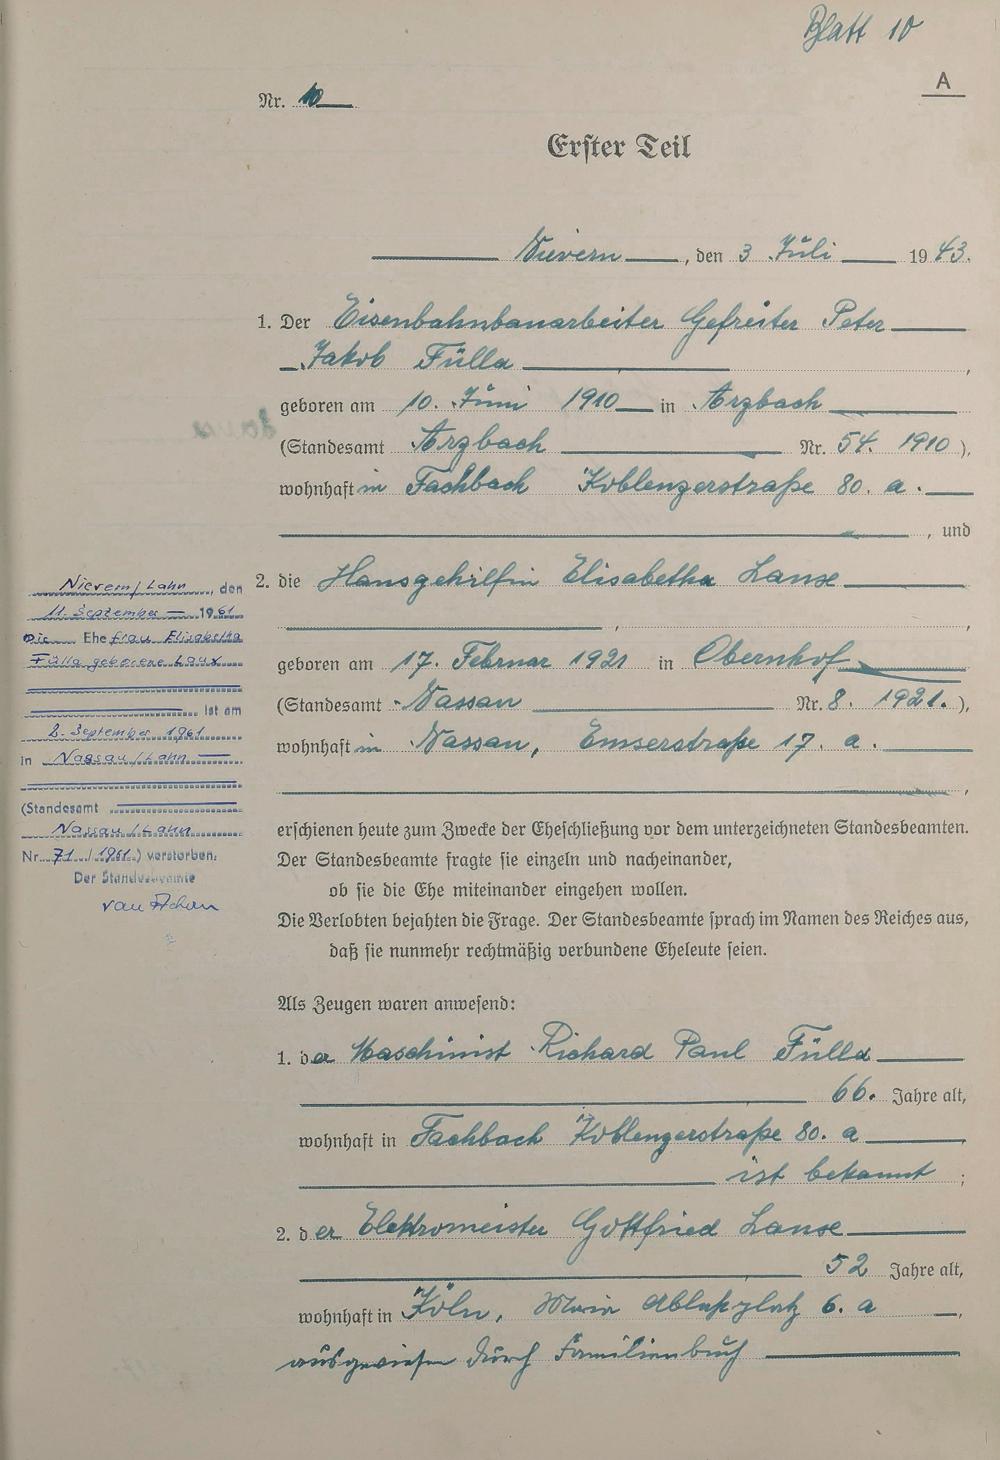 Blatt 10
A
Nr. 10
Erster Teil
Nievern, den 3 Juli 1943.
1. Der Eisenbahnbauarbeiter Gefreiter Peter
Jakob Fülla,
geboren am 10. Juni 1910 in Arzbach
(Standesamt Arzbach Nr. 54. 1910),
wohnhaft in Fachbach Koblenzerstraße 80. a.
, und
2. die Hausgehilfin Elisabetha Laux
, ,
geboren am 17. Februar 1921 in Obernhof
(Standesamt Nassau Nr. 8. 1921.),
wohnhaft in Nassau, Emserstraße 17. a.
,
erschienen heute zum Zwecke der Eheschließung vor dem unterzeichneten Standesbeamten.
Der Standesbeamte fragte sie einzeln und nacheinander,
ob sie die Ehe miteinander eingehen wollen.
Die Verlobten bejahten die Frage. Der Standesbeamte sprach im Namen des Reiches aus,
daß sie nunmehr rechtmäßig verbundene Eheleute seien.
Als Zeugen waren anwesend:
1. der Maschinist Richard Paul Fülla
66. Jahre alt,
wohnhaft in Fachbach Koblenzerstraße 80. a
ist bekannt;
2. der Elektromeister Gottfried Laux
52 Jahre alt,
wohnhaft in Köln, Maria Ablaßplatz 6. a,
ausgewiesen durch Familienbuch
Nievern/Lahn, den
11. September 1961
Die Ehefrau Elisabetha
Fülla geborene Laux
ist am
2. September 1961
in Nassau/Lahn
(Standesamt
Nassau/Lahn
Nr. 71/1961.) verstorben.
Der Standesbeamte